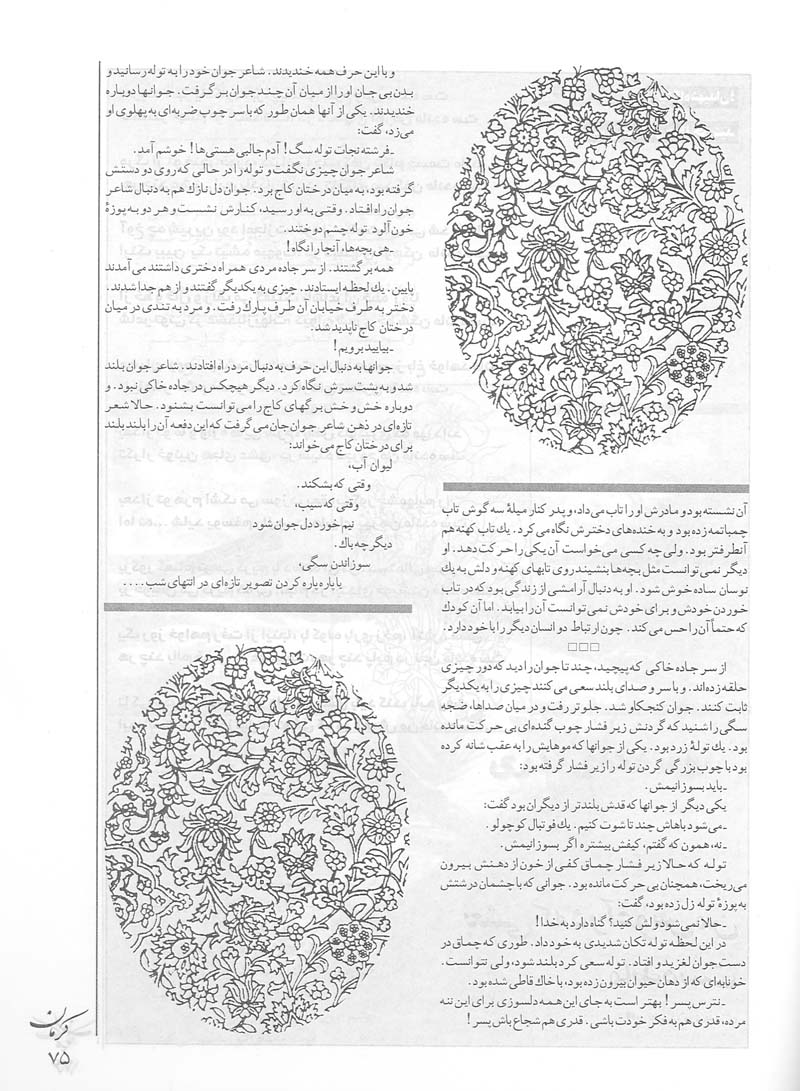 آن نشسته بود و مادرش او را تاب می‌داد، و پدر کنار میلهٔ سه گوش تاب
چمباتمه زده بود و به خنده‌های دخترش نگاه می‌کرد. یك تاب کهنه هم
آنطرفتر بود. ولی چه کسی می‌خواست آن یکی را حرکت دهد. او
دیگر نمی‌توانست مثل بچه‌ها بنشیند روی تابهای کهنه و دلش به یك
نوسان ساده خوش شود. او به دنبال آرامشی از زندگی بود که در تاب
خوردن خودش و برای خودش نمی‌توانست آن را بیابد. اما آن کودك
که حتماً آن را حس می‌کند. چون ارتباط دو انسان دیگر را با خود دارد.
□□□
از سر جاده خاکی که پیچید، چند تا جوان را دید که دور چیزی
حلقه زده‌اند. و با سر و صدای بلند سعی می‌کنند چیزی را به یکدیگر
ثابت کنند. جوان کنجکاو شد. جلوتر رفت و در میان صداها، ضجه
سگی را شنید که گردنش زیر فشار چوب گنده‌ای بی حرکت مانده
بود. یك تولهٔ زرد بود. یکی از جوانها که موهایش را به عقب شانه کرده
بود با چوب بزرگی گردن توله را زیر فشار گرفته بود:
ـ باید بسوزانیمش.
یکی دیگر از جوانها که قدش بلندتر از دیگران بود گفت:
ـ می‌شود باهاش چند تا شوت کنیم. یك فوتبال کوچولو.
ـ نه، همون که گفتم، کیفش بیشتره اگر بسوزانیمش.
توله که حالا زیر فشار چماق کفی از خون از دهنش بیرون
می‌ریخت، همچنان بی حرکت مانده بود. جوانی که با چشمان درشتش
به پوزهٔ توله زل زده بود، گفت:
ـ حالا نمی‌شود ولش کنید؟ گناه دارد به خدا!
در این لحظه توله تکان شدیدی به خود داد. طوری که چماق در
دست جوان لغزید و افتاد. توله سعی کرد بلند شود، ولی نتوانست.
خونابه‌ای که از دهان حیوان بیرون زده بود، با خاك قاطی شده بود.
ـ نترس پسر! بهتر است به جای این همه دلسوزی برای این ننه
مرده، قدری هم به فکر خودت باشی. قدری هم شجاع باش پسر!
و با این حرف همه خندیدند. شاعر جوان خود را به توله رسانید و
بدن بی جان او را از میان آن چند جوان برگرفت. جوانها دوباره
خندیدند. یکی از آنها همان طور که با سر چوب ضربه‌ای به پهلوی او
می‌زد، گفت:
ـ فرشته نجات توله سگ! آدم جالبی هستی‌ها! خوشم آمد.
شاعر جوان چیزی نگفت و توله را در حالی که روی دو دستش
گرفته بود، به میان درختان کاج برد. جوان دل نازك هم به دنبال شاعر
جوان راه افتاد. وقتی به او رسید، کنارش نشست و هر دو به پوزهٔ
خون آلود توله چشم دوختند.
ـ هی بچه‌ها، آنجا را نگاه!
همه برگشتند. از سر جاده مردی همراه دختری داشتند می‌آمدند
پایین. یك لحظه ایستادند. چیزی به یکدیگر گفتند و از هم جدا شدند.
دختر به طرف خیابان آن طرف پارك رفت. و مرد به تندی در میان
درختان کاج ناپدید شد.
ـ بیایید برویم!
جوانها به دنبال این حرف به دنبال مرد راه افتادند. شاعر جوان بلند
شد و به پشت سرش نگاه کرد. دیگر هیچکس در جاده خاکی نبود. و
دوباره خش و خش برگهای کاج را می‌توانست بشنود. حالا شعر
تازه‌ای در ذهن شاعر جوان جان می‌گرفت که این دفعه آن را بلند بلند
برای درختان کاج می‌خواند:
لیوان آب،
وقتی که بشکند.
وقتی که سیب،
نیم خورد دل جوان شود
دیگر چه باك.
سوزاندن سگی،
یا پاره پاره کردن تصویر تازه‌ای در انتهای شب....
کرمان
۷۵